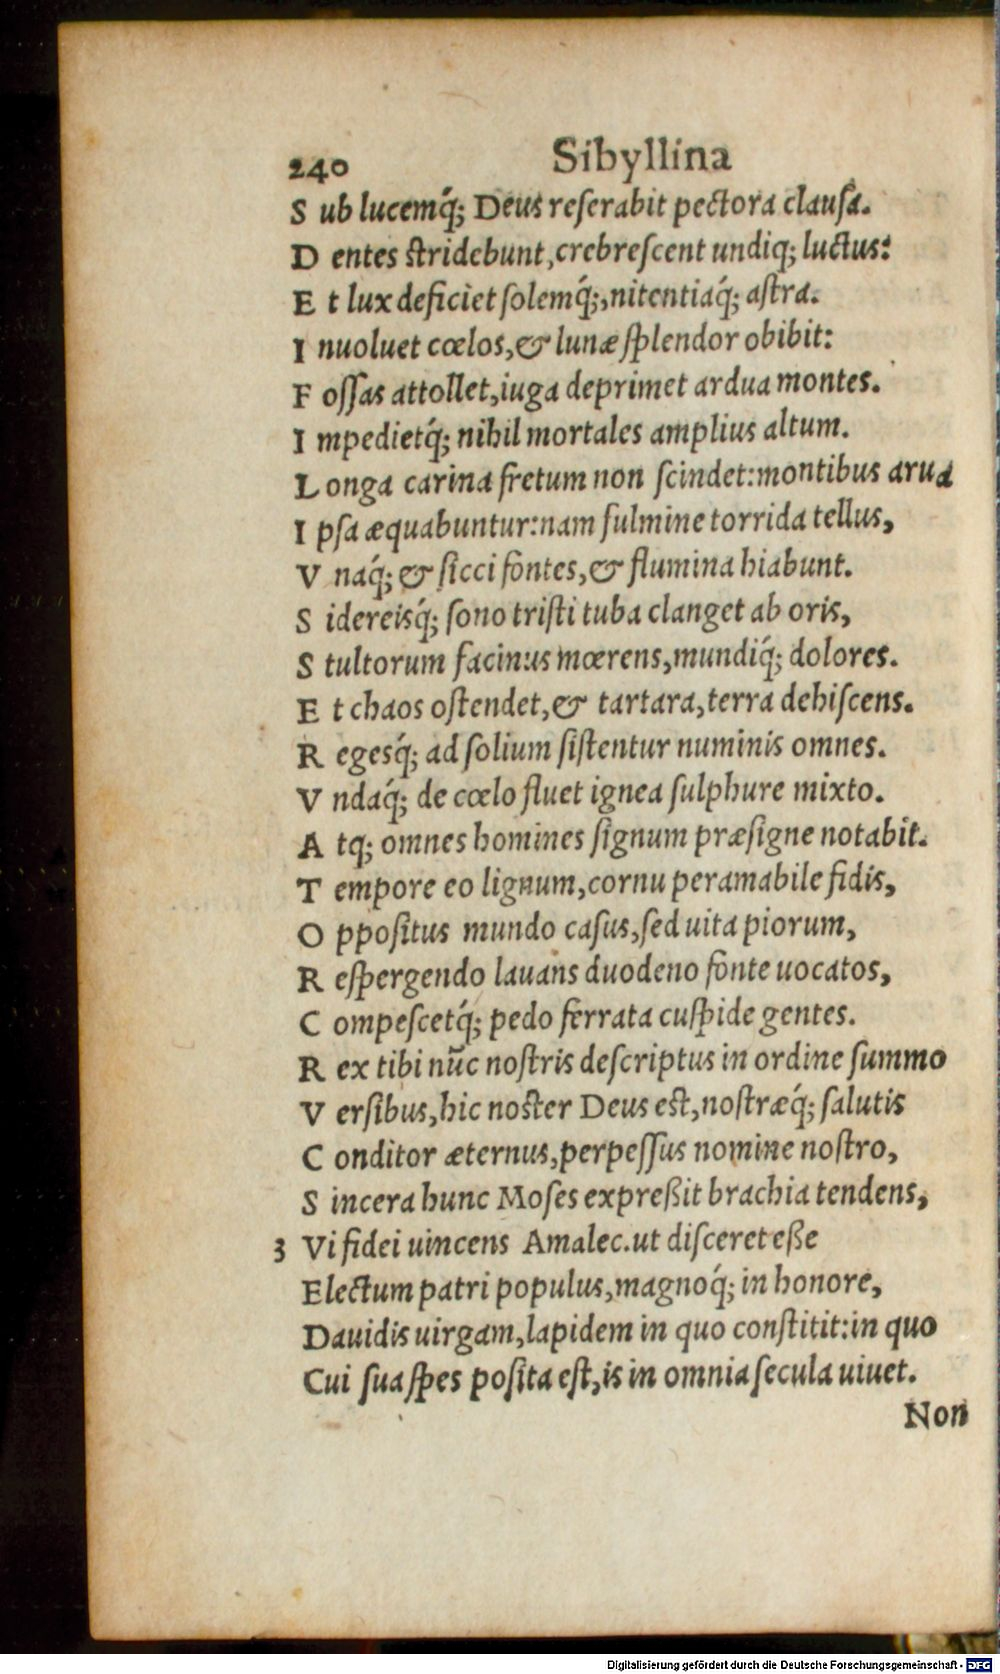 240 Sibyllina
S ub lucemq́; Deus reſerabit pectora clauſa.
D entes ſtridebunt,crebreſcent undiq; luctus:
E t lux deficiet ſolemq́;,nitentiaq́; aſtra.
I nuoluet cœlos,& lunæ ſplendor obibit:
F oſſas attollet,iuga deprimet ardua montes.
I mpedietq́; nihil mortales amplius altum.
L onga carina fretum non ſcindet:montibus arua
I pſa æquabuntur:nam fulmine torrida tellus,
V naq́; & ſicci fontes,& flumina hiabunt.
S idereisq́; ſono triſti tuba clanget ab oris,
S tultorum facinus mœrens,mundiq́; dolores.
E t chaos oſtendet,& tartara,terra dehiſcens.
R egesq́; ad ſolium ſiſtentur numinis omnes.
V ndaq́; de cœlo fluet ignea ſulphure mixto.
A tq; omnes homines ſignum præſigne notabit.
T empore eo lignum,cornu peramabile fidis,
O ppoſitus mundo caſus,ſed uita piorum,
R eſpergendo lauans duodeno fonte uocatos,
C ompeſcetq́; pedo ferrata cuſpide gentes.
R ex tibi nũc noſtris deſcriptus in ordine ſummo
V erſibus,hic noſter Deus eſt,noſtræq́; ſalutis
C onditor æternus,perpeſſus nomine noſtro,
S incera hunc Moſes expreßit brachia tendens,
3 Vi fidei uincens Amalec.ut diſceret eße
Electum patri populus,magnoq́; in honore,
Dauidis uirgam,lapidem in quo conſtitit:in quo
Cui ſua ſpes poſita eſt,is in omnia ſecula uiuet.
Non
Digitalisierung gefördert durch die Deutsche Forschungsgemeinschaft - DFG